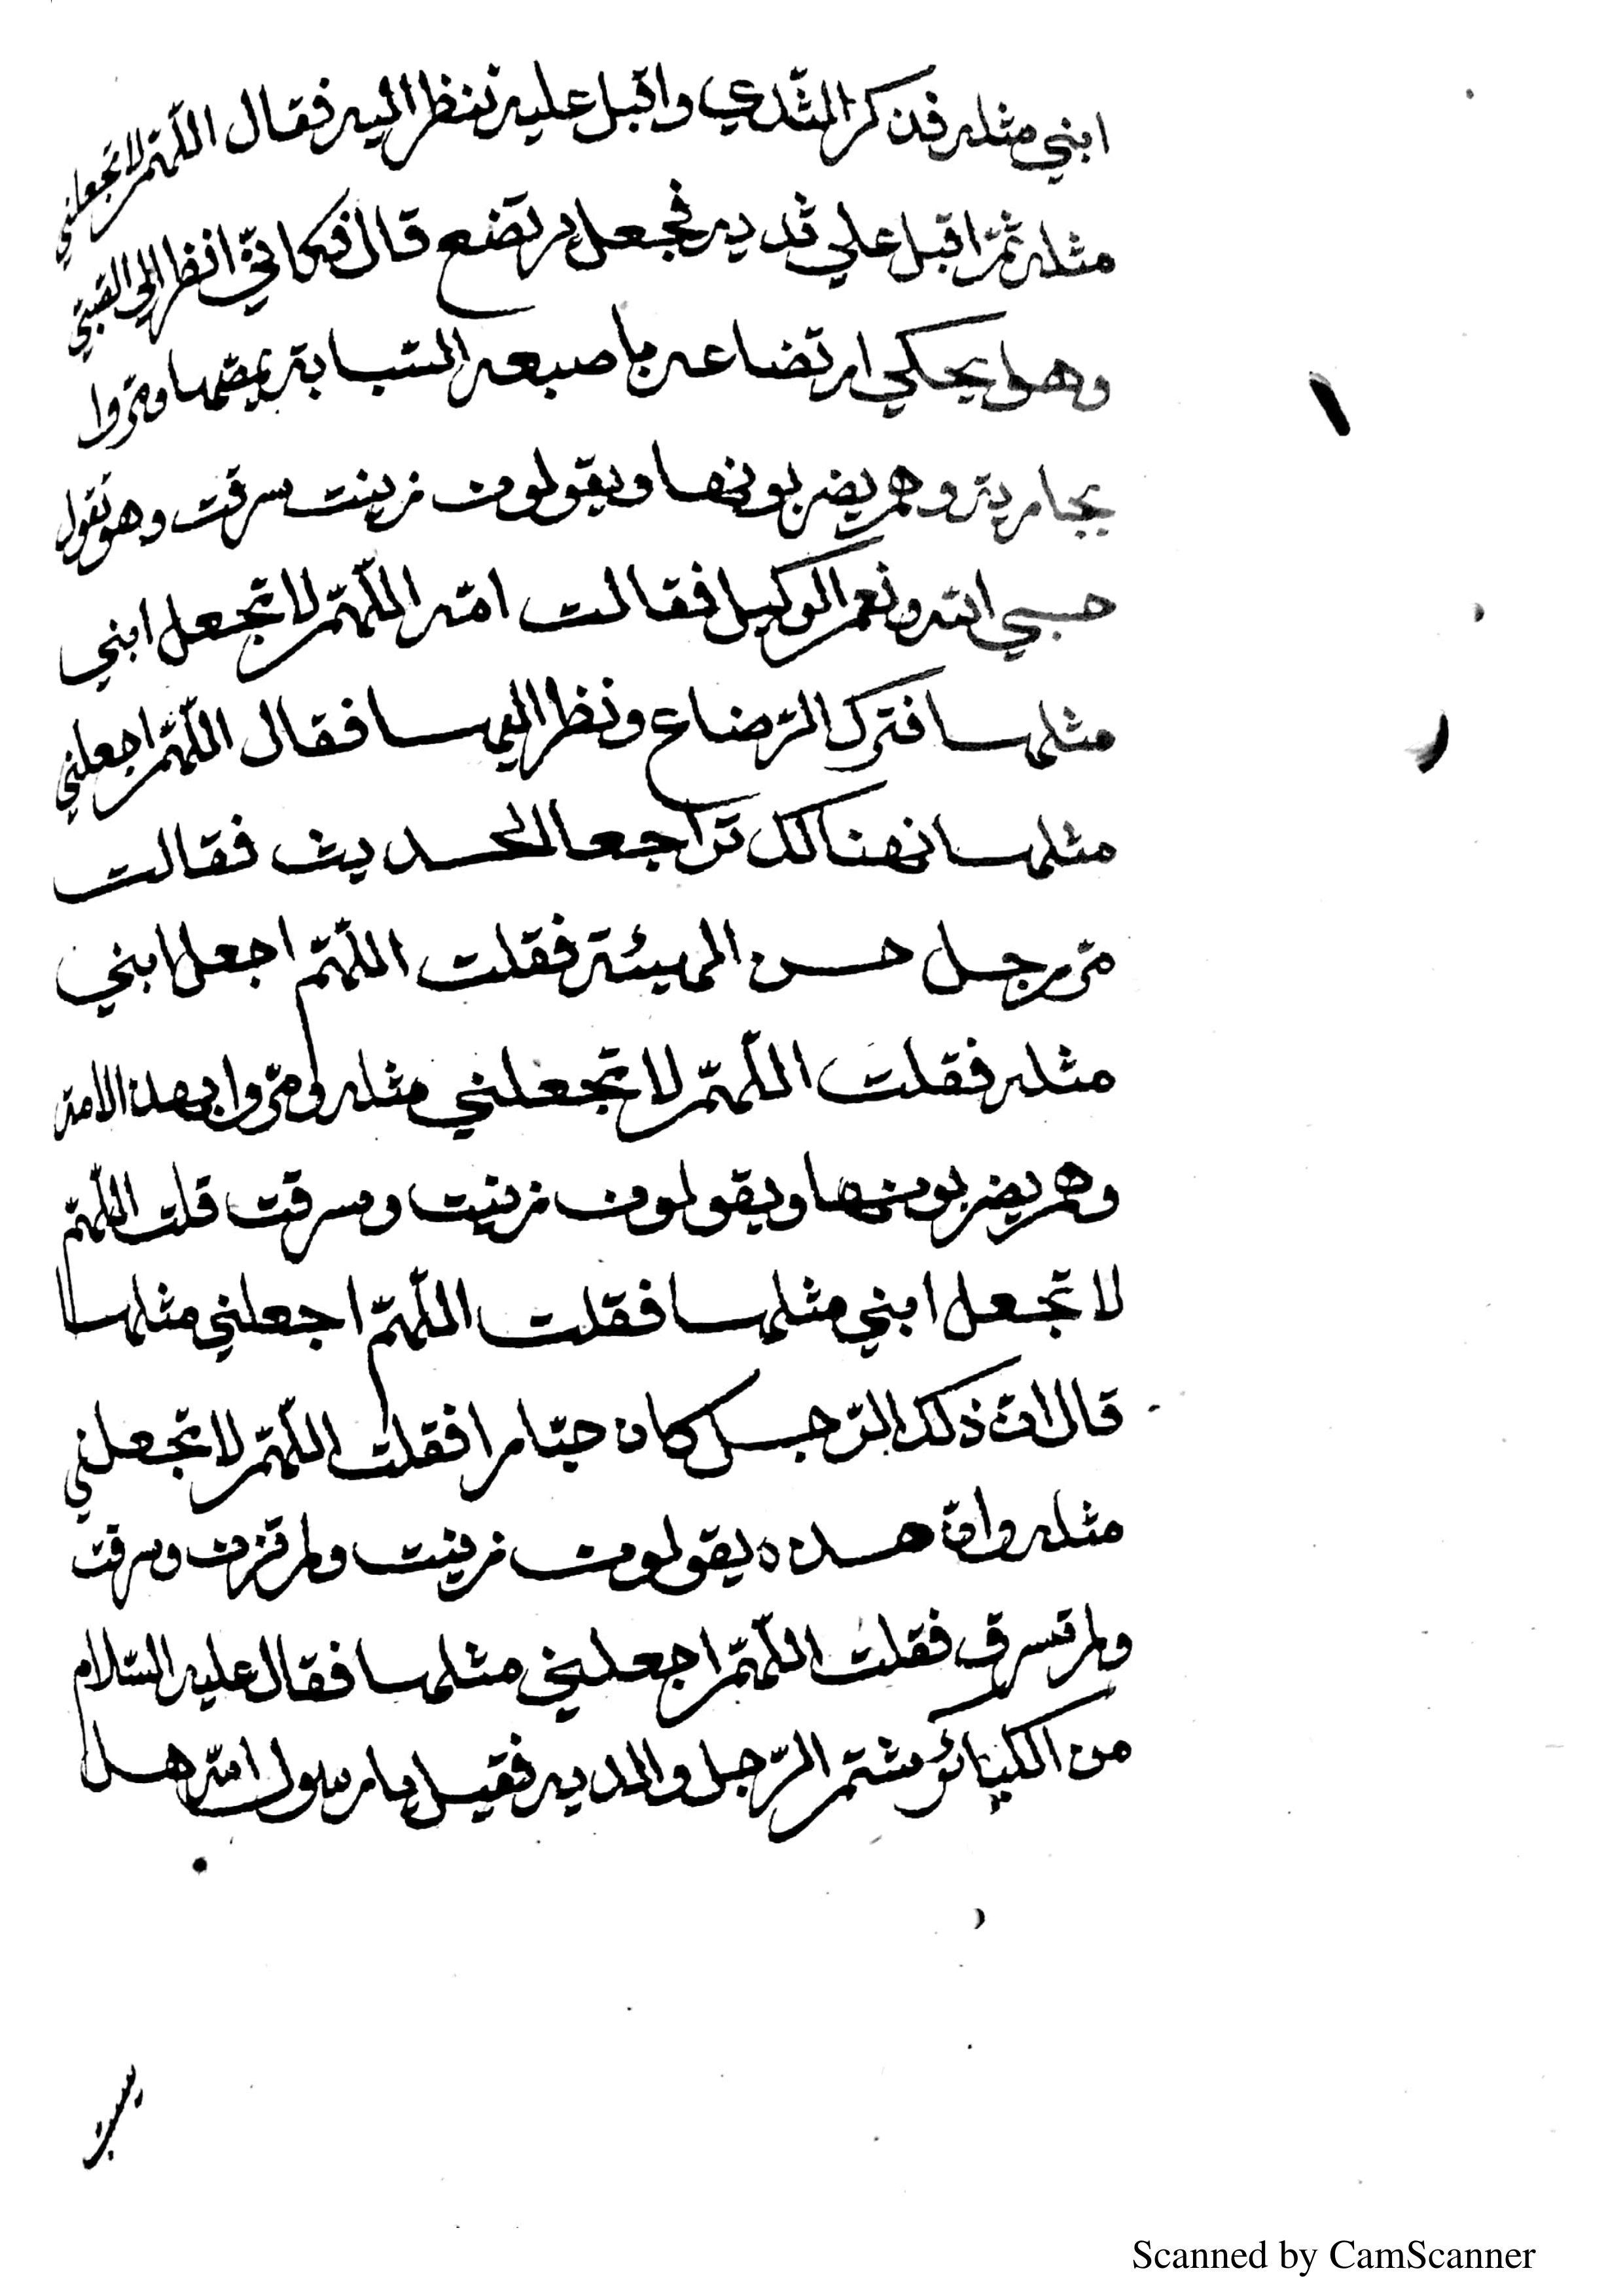 ابني مثله فذكر الثدي واقبل عليه ننظر اليه فقال اللّهمّ لا تجعلني
مثله ثمّ اقبل علي ثديه فجعل يرتضع قال فكانّي انظر الى النّبيّ
وهو يحكي ارتضاعه باصبعه السّبابة يمصّها ومرّوا
بجارية وهم يضربونها ويقولون زينت سرقت وهو تقول
حسبي الله ونعم الوكيل فقالت امّه اللّهمّ لا تجعل ابني
مثلها فترك الرّضاع ونظر اليها فقال اللّهمّ اجعلني
مثلها فهنالك تراجعا الحديث فقالت
مرّ رجل حسن الهيئة فقلت اللّهمّ اجعل ابني
مثله فقلت اللّهمّ لا تجعلني مثله ومرّوا بهذه الامة
وهم يضربونها ويقولون زنيت وسرقت قلت اللّهمّ
لا تجعل ابني مثلها فقلت اللّهمّ اجعلني مثلها
قال انّ ذلك الرّجل كان جبّارا فقلت اللّهمّ لا تجعلني
مثله وانّ هذه يقولون زنيت ولم تزن وسرقت
ولم تسرق فقلت اللّهمّ اجعلني مثلها فقال عليه السّلام
من الكبائر شتم الرّجل والديه فقيل يا رسول الله هل
Scanned by CamScanner